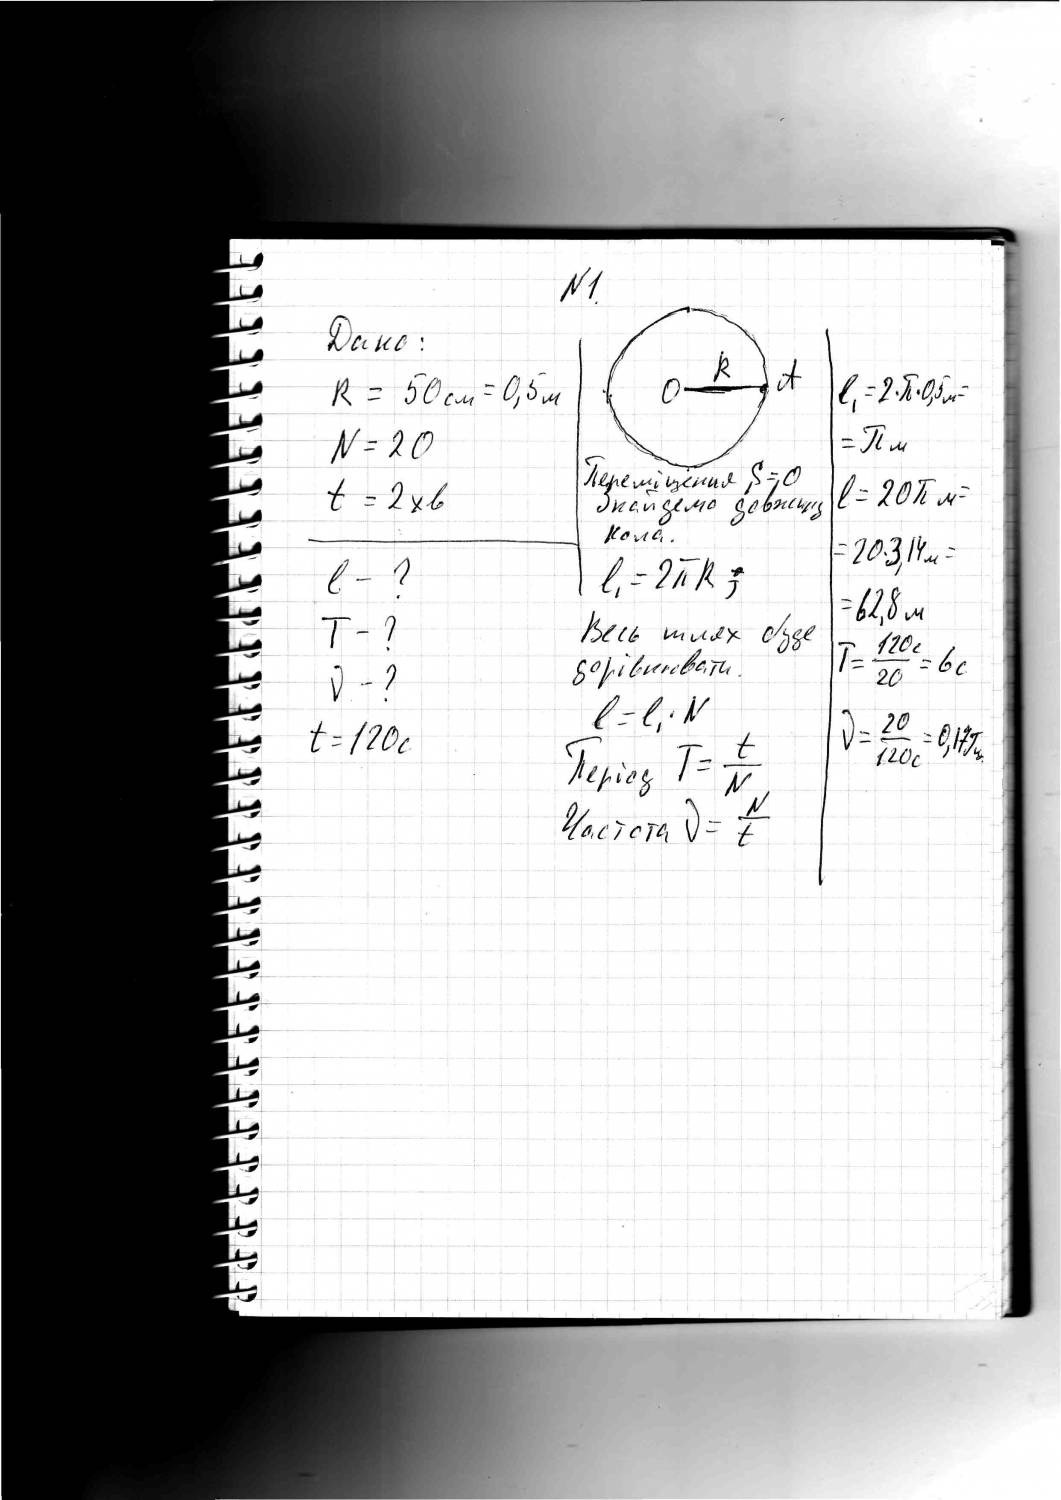 N1.
Дано:
R = 50 см = 0,5 м
N = 20
t = 2 хв
l - ?
T - ?
ν - ?
t = 120 с
O R A
Переміщення S = 0
Знайдемо довжину
кола.
l₁ = 2πR ;
Весь шлях буде
дорівнювати.
l = l₁ · N
Період T = t/N
Частота ν = N/t
l₁ = 2·π·0,5 м =
= π м
l = 20π м =
= 20·3,14 м =
= 62,8 м
T = 120с/20 = 6 с
ν = 20/120с = 0,17 Гц.